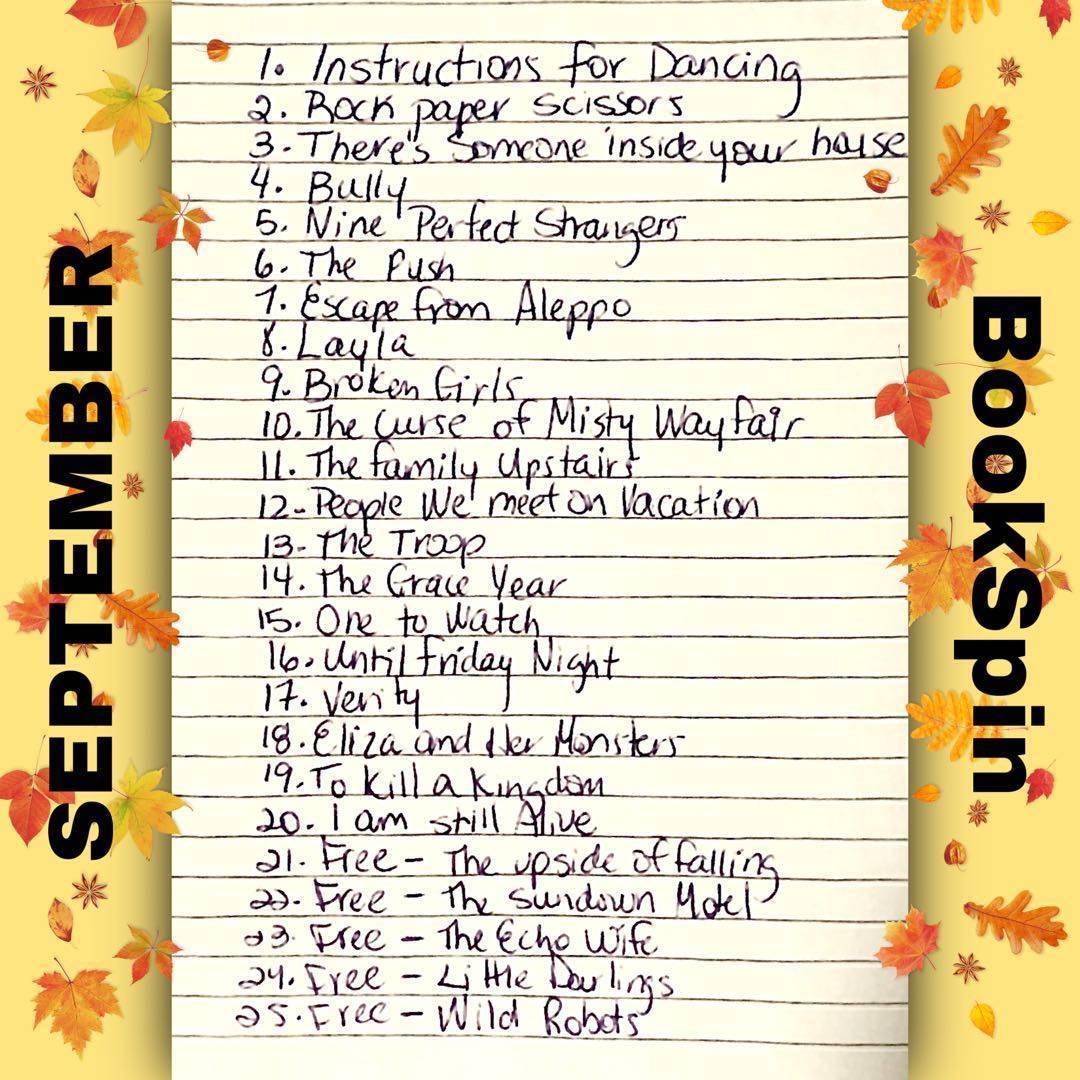 SEPTEMBER
1. Instructions for Dancing
2. Rock paper scissors
3. There's Someone inside your house
4. Bully
5. Nine Perfect Strangers
6. The Push
7. Escape from Aleppo
8. Layla
9. Broken Girls
10. The Curse of Misty Wayfair
11. The family Upstairs
12. People We meet on Vacation
13. The Troop
14. The Grace Year
15. One to Watch
16. Until Friday Night
17. Verity
18. Eliza and Her Monsters
19. To Kill a Kingdom
20. I am still Alive
21. Free - The upside of falling
22. Free - The Sundown Motel
23. Free - The Echo Wife
24. Free - Little Darlings
25. Free - Wild Robots
BookSpin